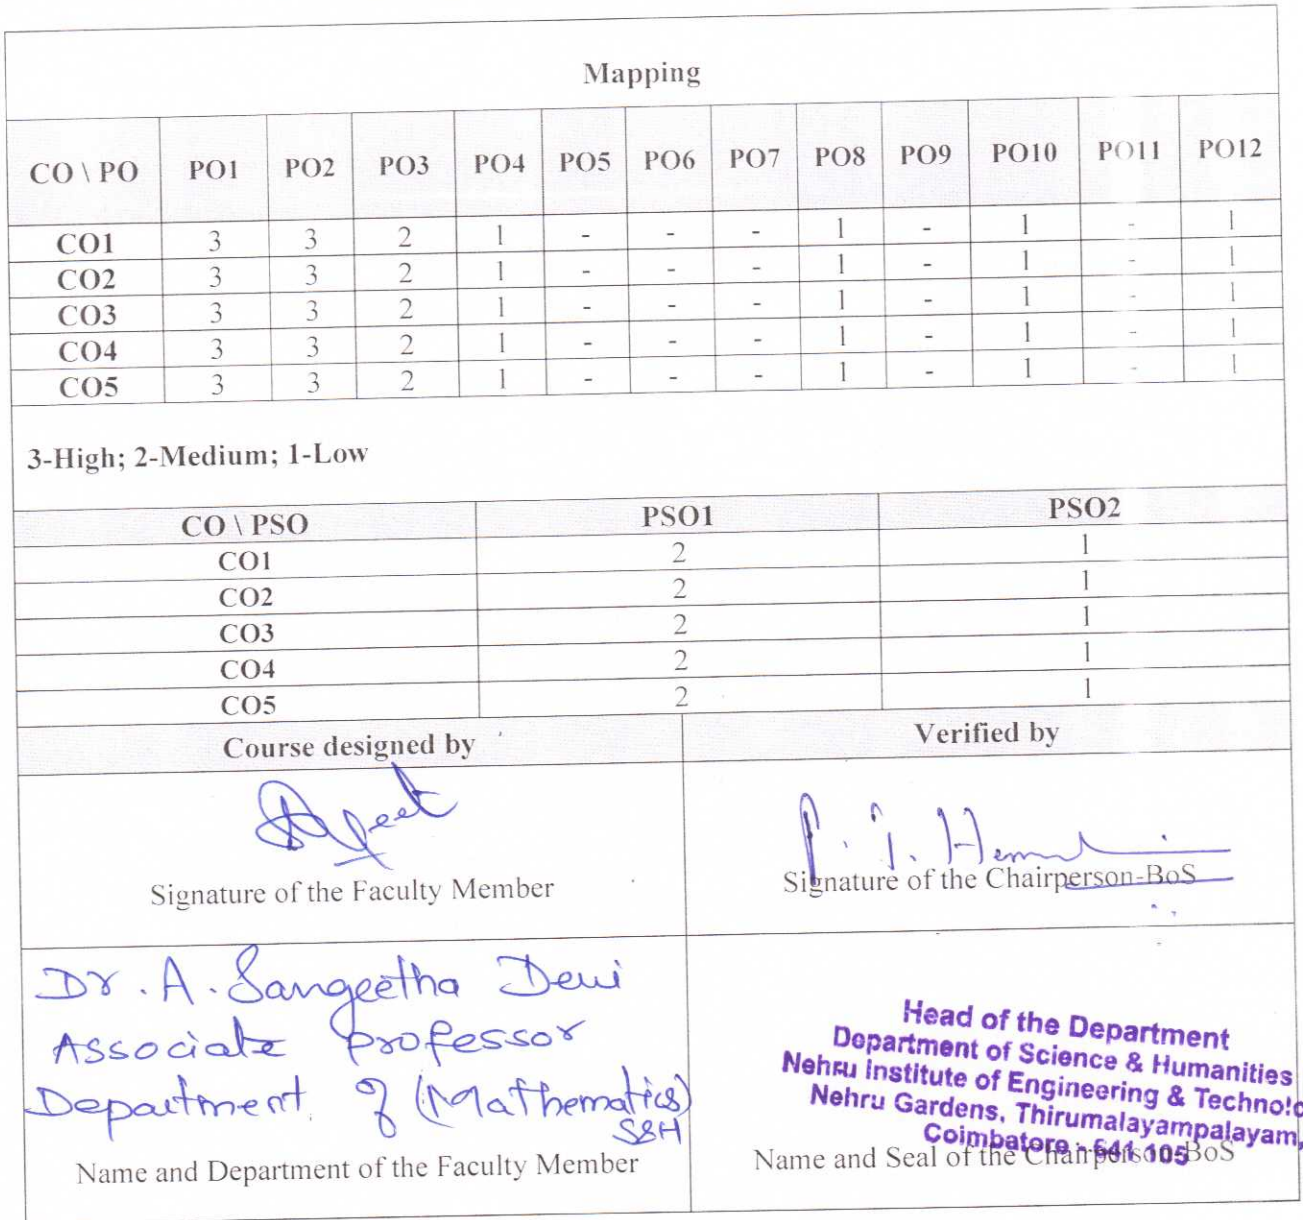 Mapping
CO \ PO PO1 PO2 PO3 PO4 PO5 PO6 PO7 PO8 PO9 PO10 PO11 PO12
CO1 3 3 2 1 - - - 1 - 1 - 1
CO2 3 3 2 1 - - - 1 - 1 - 1
CO3 3 3 2 1 - - - 1 - 1 - 1
CO4 3 3 2 1 - - - 1 - 1 - 1
CO5 3 3 2 1 - - - 1 - 1 - 1
3-High; 2-Medium; 1-Low
CO \ PSO PSO1 PSO2
CO1 2 1
CO2 2 1
CO3 2 1
CO4 2 1
CO5 2 1
Course designed by Verified by
Signature of the Faculty Member
P. J.
Signature of the Chairperson-BoS
Dr. A. Sangeetha Devi
Associate professor
Department of (Mathematics)
S&H
Name and Department of the Faculty Member
Head of the Department
Department of Science & Humanities
Nehru Institute of Engineering & Technolo
Nehru Gardens, Thirumalayampalayam,
Coimbatore - 641 105
Name and Seal of the Chairperson-BoS